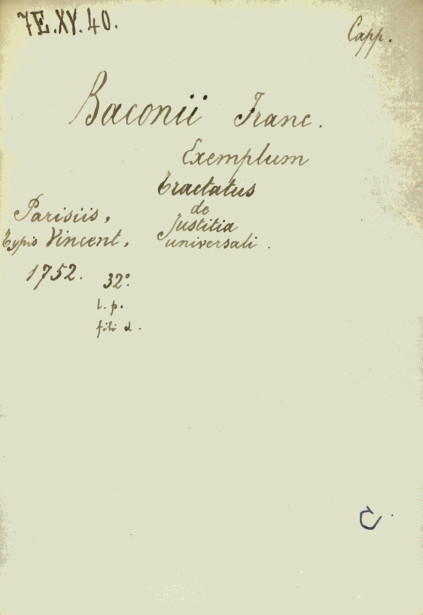 7E.XV.40.
Capp.
Baconii Franc.
Exemplum
tractatus
de
Justitia
universali.
Parisiis,
typis Vincent,
1752. 32°
t. p.
fili d.
C